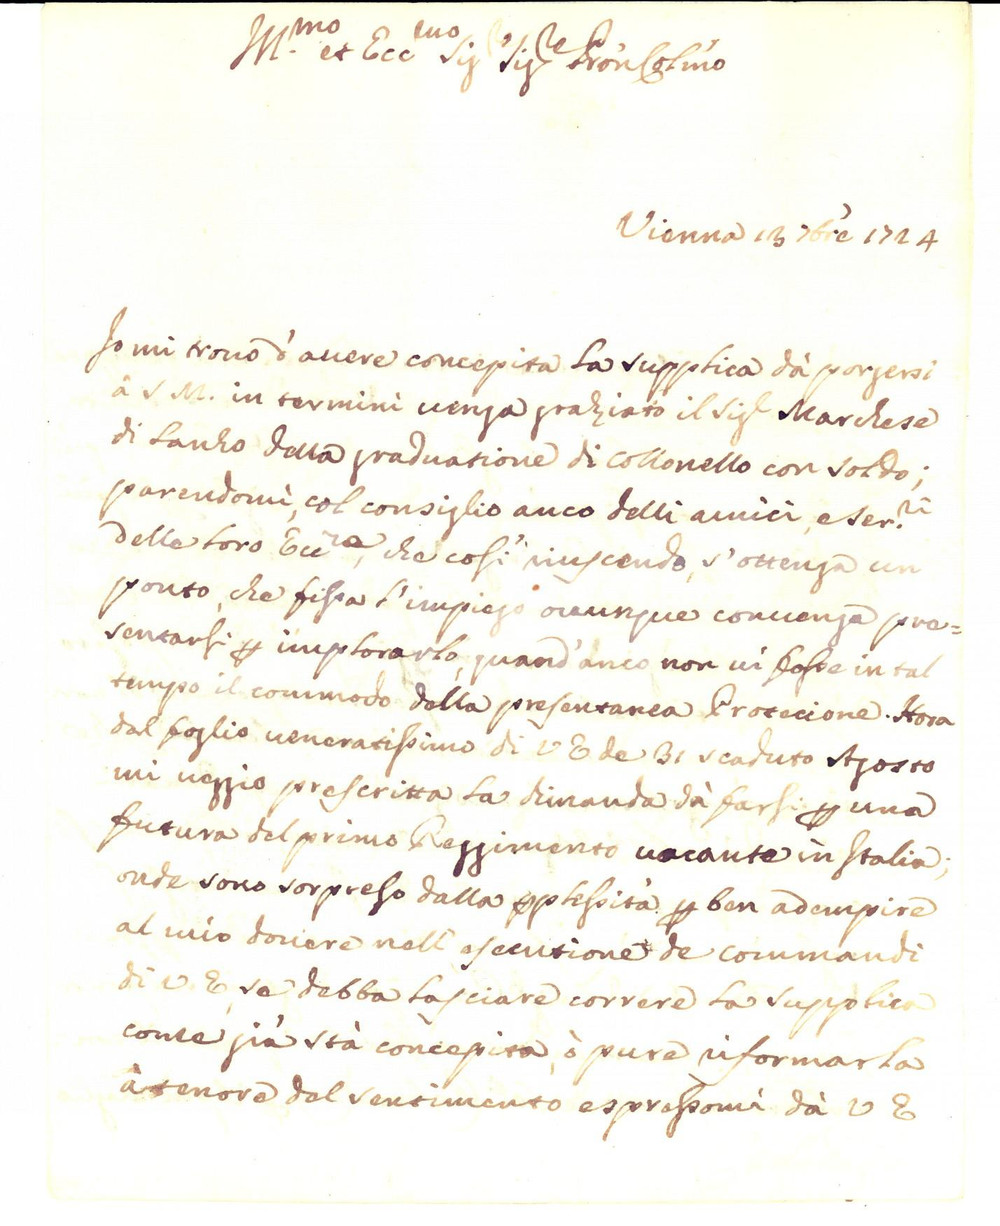 Ill.mo et Ecc.mo Sig.r Sig.re Pron Col.mo
Vienna 13 7bre 1724
Io mi trovo d'avere concepita la supplica dà porgersi
à S M. in termini venga graziato il Sig.r Marchese
di della graduatione di Collonello con soldo;
parendomi, col consiglio anco delli amici, e ser.ri
delle loro Ecc.ze, che cosi riuscendo, s'ottenga un
ponto, che fissa l'impiego ovunque convenga pre=
sentarsi p implorarlo, quand'anco non vi fosse in tal
tempo il commodo della presentanea Protecione. Hora
dal foglio veneratissimo di V E de 31 scaduto Agosto
mi veggio prescritta la dimanda dà farsi p una
futura del primo Reggimento vacante in Italia;
onde sono sorpreso dalla pplessità p ben adempire
al mio dovere nell' esecutione de commandi
di V E, se debba lasciare correre la supplica
come già stà concepita, ò pure riformarla
à tenore del sentimento espressomi dà V E